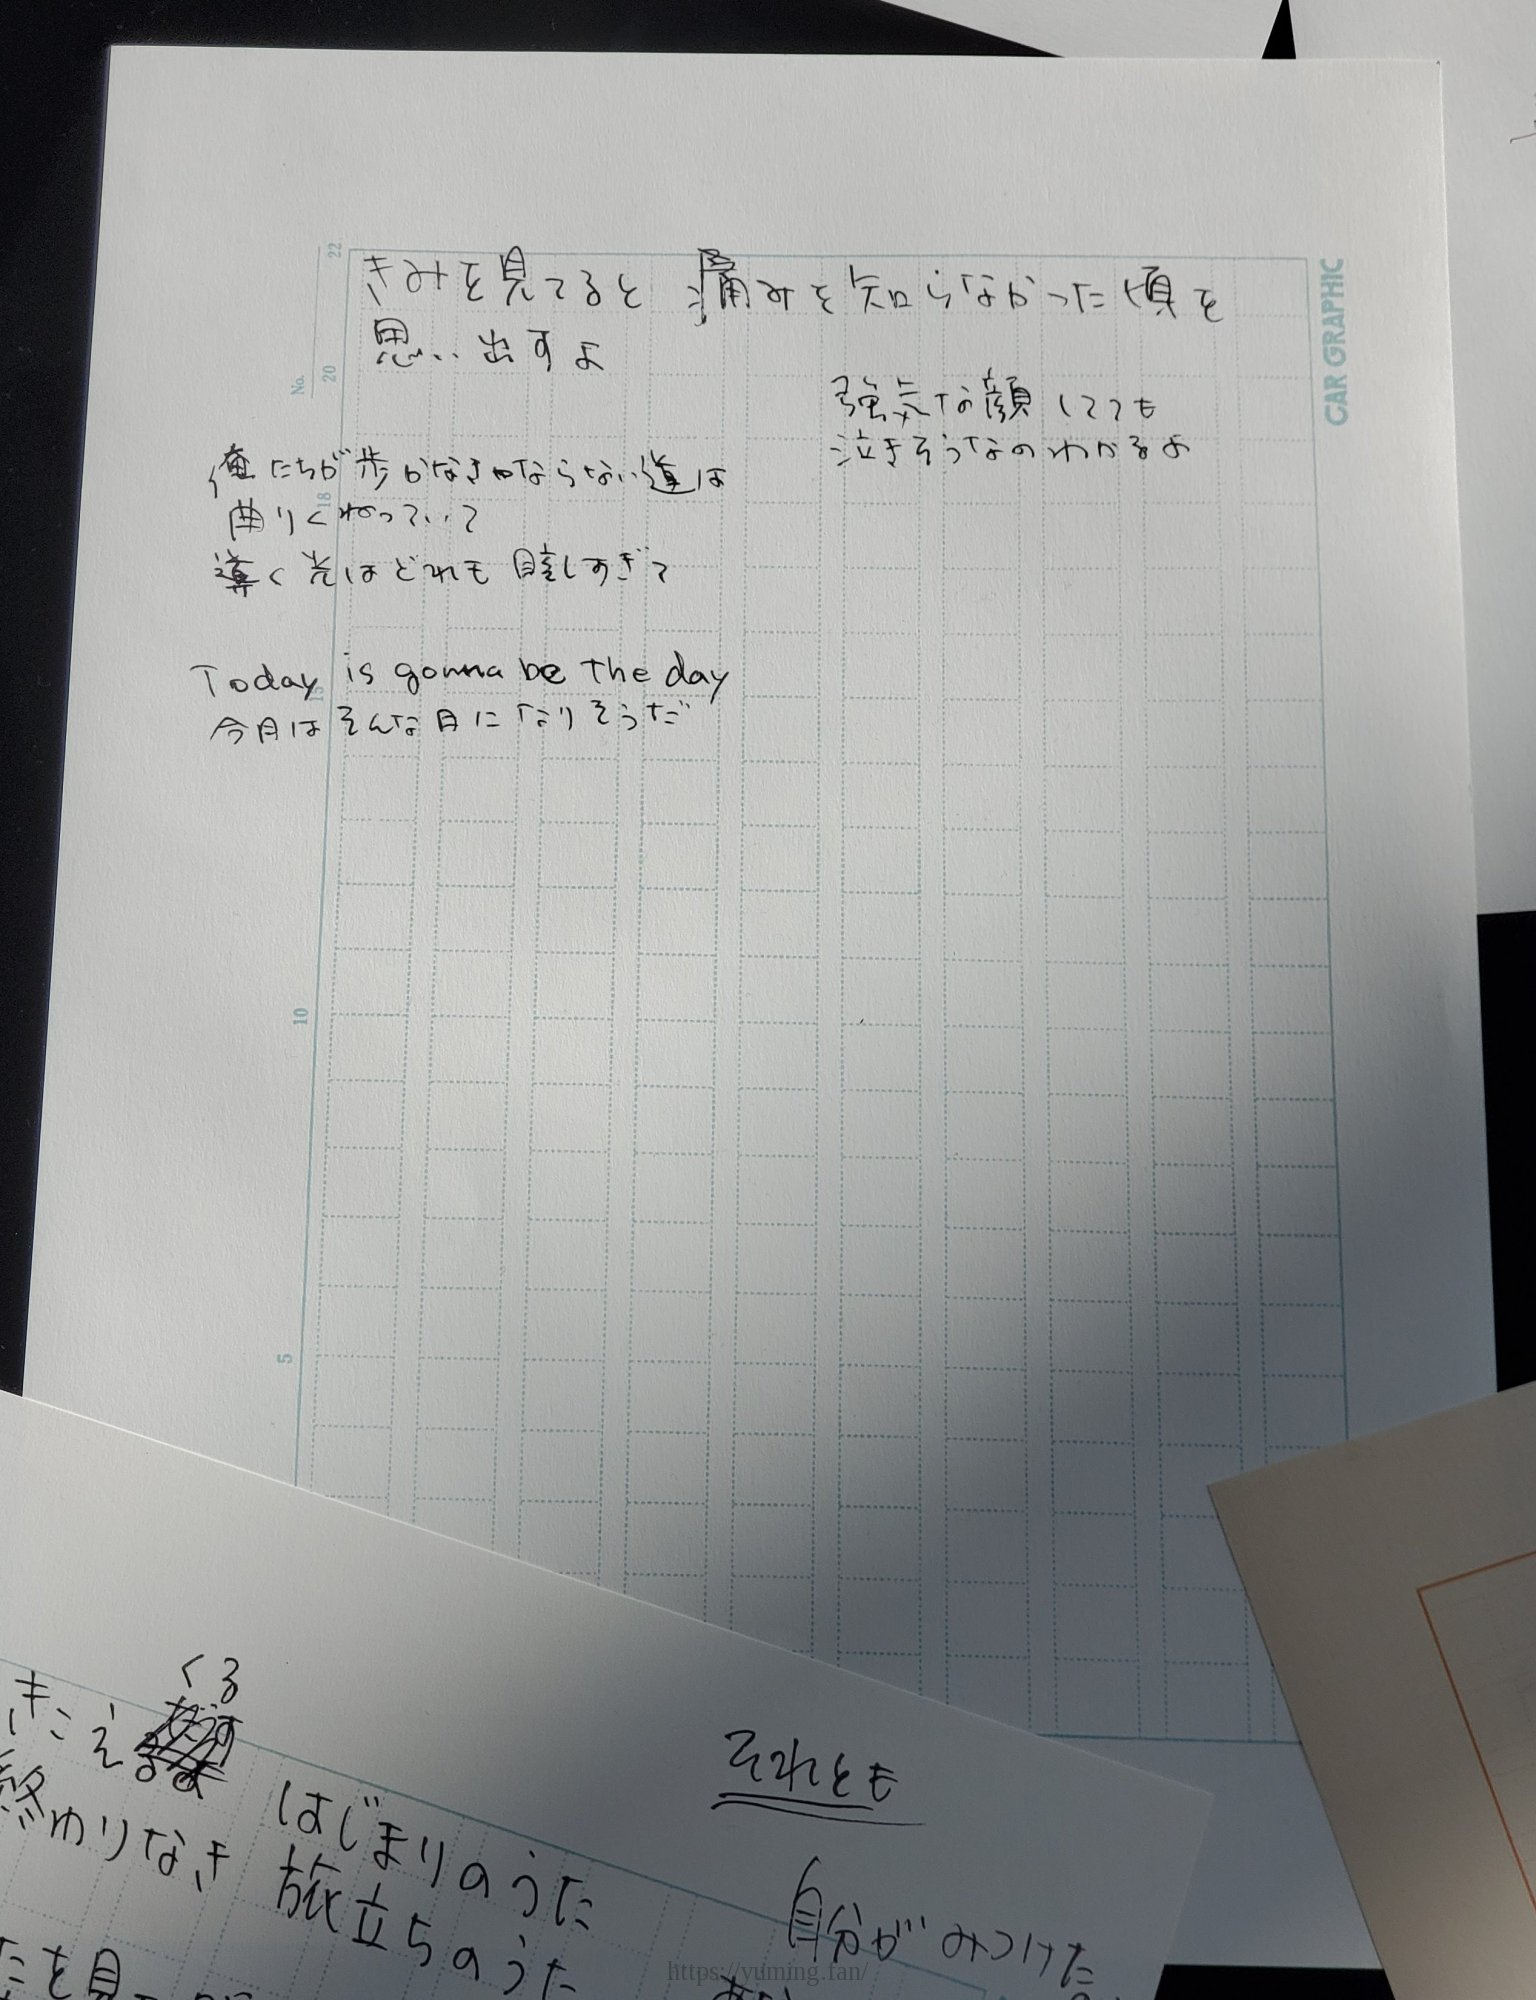 きみを見てると 痛みを知らなかった頃を
思い出すよ
強気な顔してても
泣きそうなのわかるよ
俺たちが歩かなきゃならない道は
曲りくねっていて
導く光はどれも眩しすぎて
Today is gonna be the day
今日はそんな日になりそうだ
CAR GRAPHIC
No.
22
20
18
15
10
5
くる
きこえ
はじまりのうた
終わりなき 旅立ちのうた
それとも
自分がみつけた
https://yuming.fan/